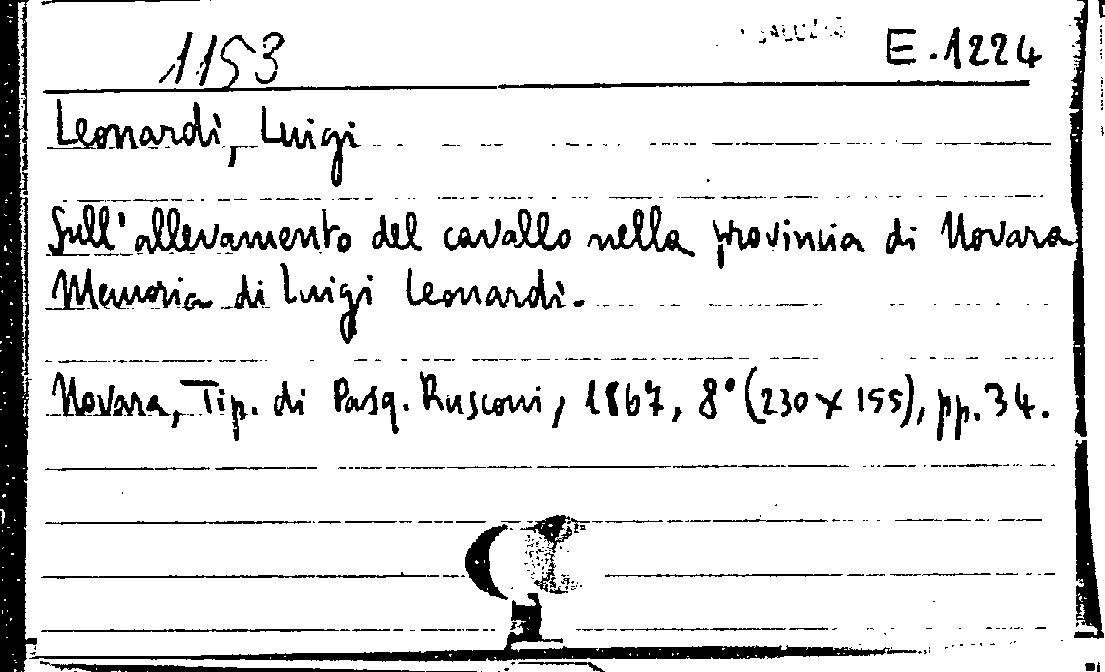 1153
E.1224
Leonardi, Luigi
Sull'allevamento del cavallo nella provincia di Novara
Memoria di Luigi Leonardi.
Novara, Tip. di Pasq. Rusconi, 1867, 8° (230 x 155), pp. 34.